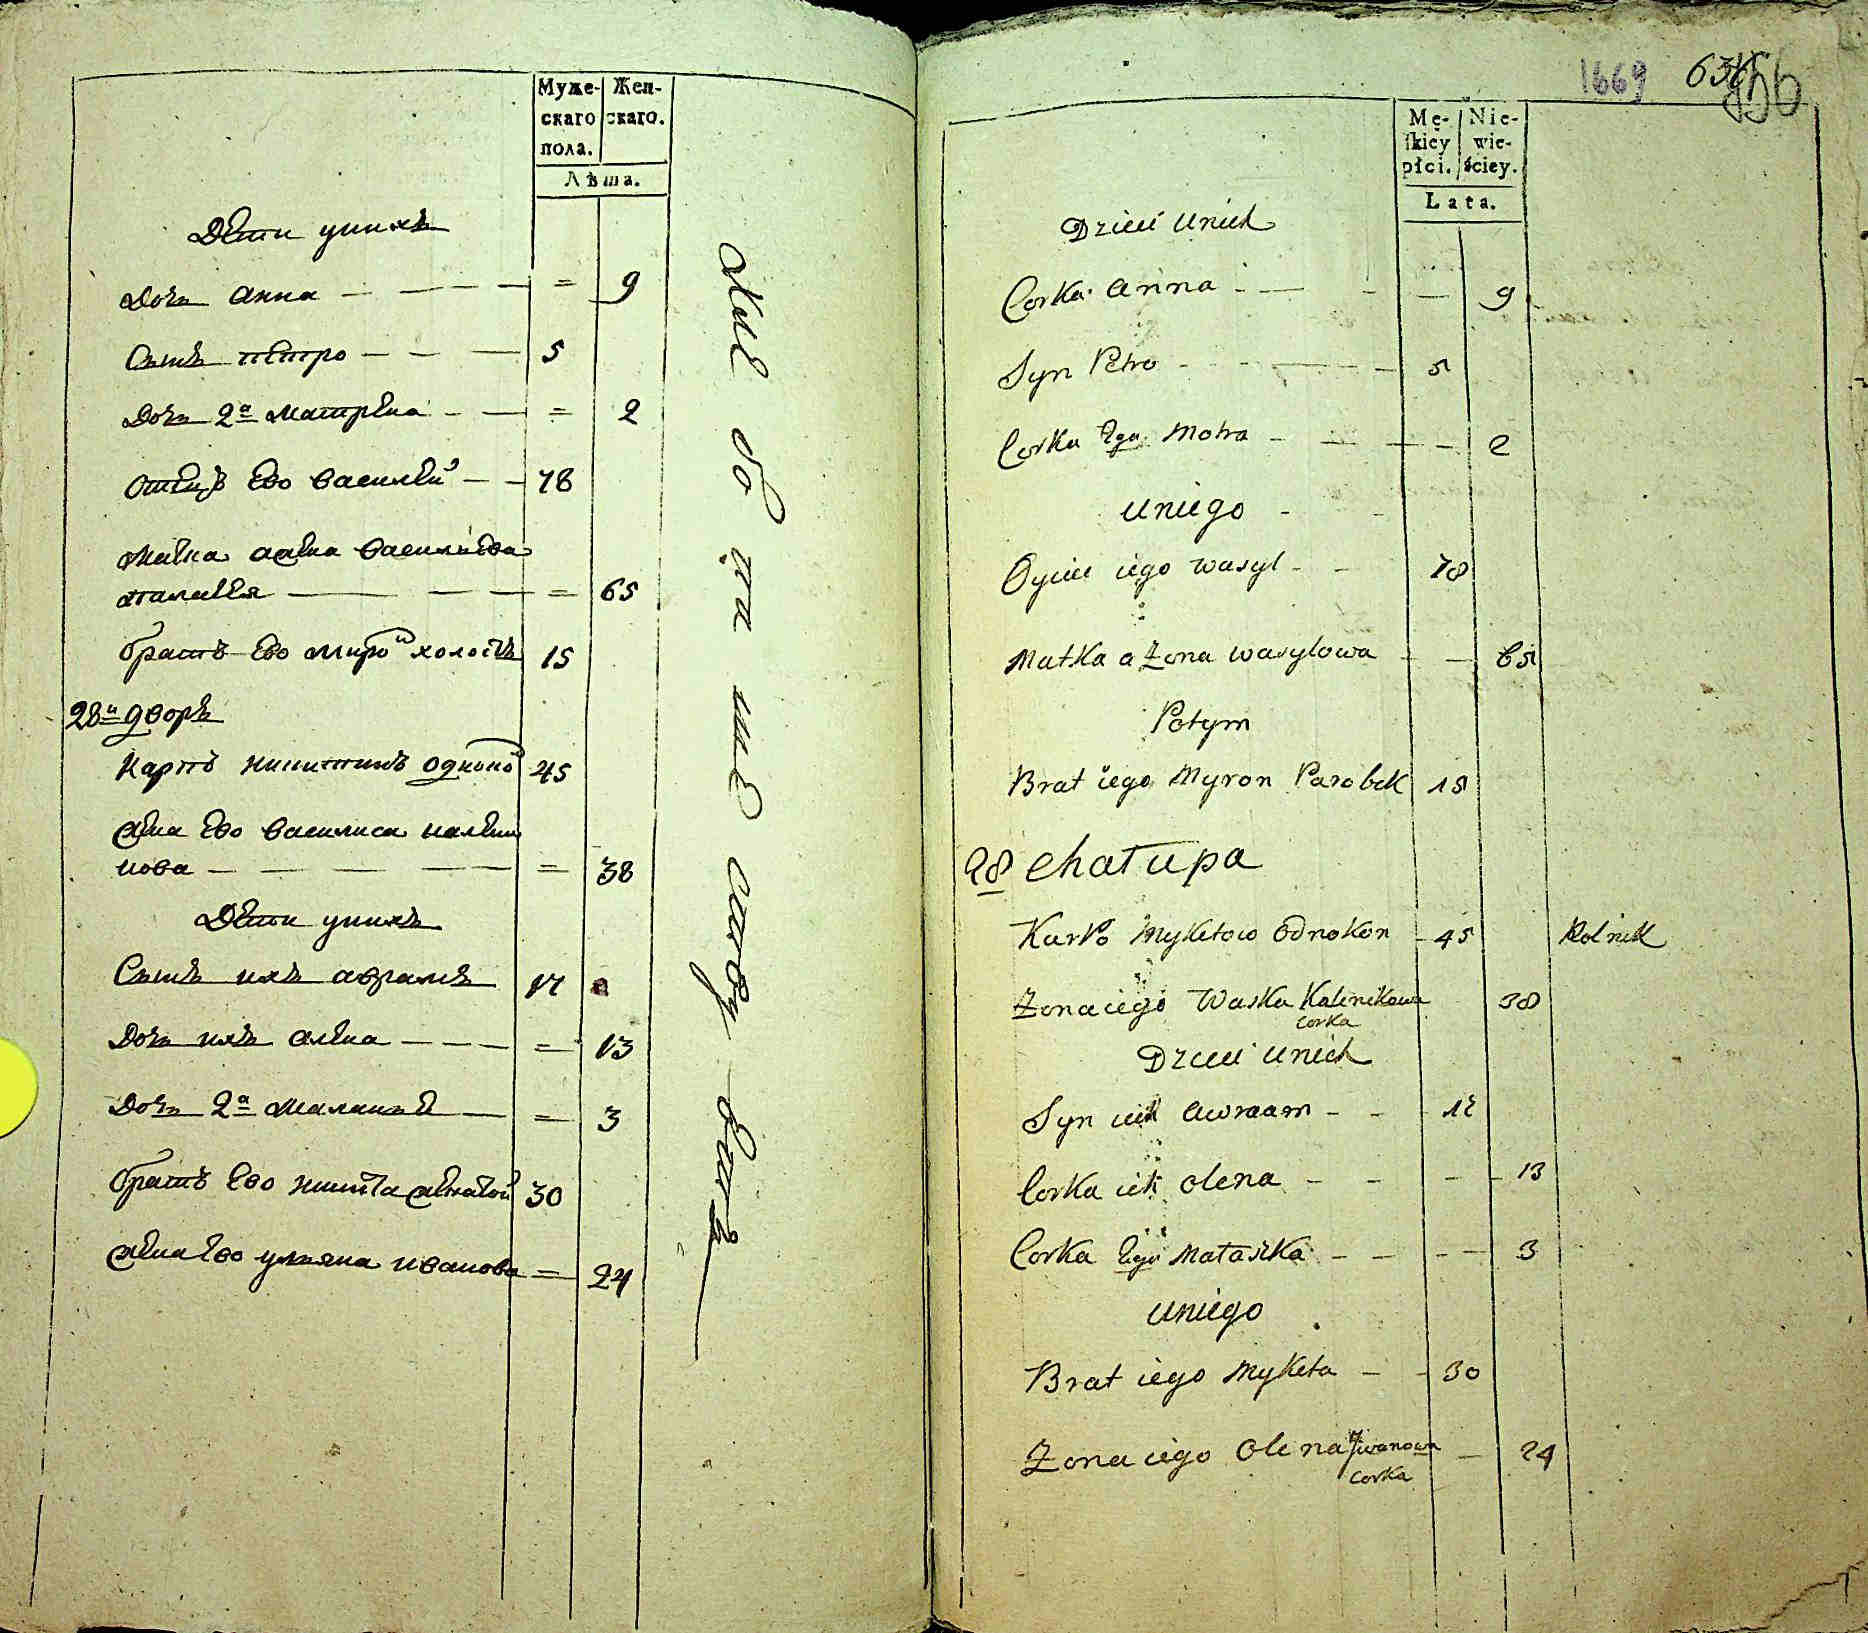 Муже-
скаго
пола.
Жен-
скаго.
Лѣта.
Дети унихъ
Дочь анна 9
Сынъ петро 5
Дочь 2а матрена 2
отецъ Ево василей 78
Матка
65
братъ Ево миронъ холостъ 15
28й дворъ
Карпъ никитинъ 45
жена Ево василиса калени
кова 38
Дети унихъ
Сынъ ихъ аврамъ 17
Дочь ихъ алена 13
Дочь 2а 3
братъ Ево никита женатой 30
жена Ево ульяна иванова 24
1669 636
Mę-
ſkiey
płci.
Nie-
wie-
ściey.
Lata.
Dzieci unich
Corka anna 9
Syn Petro 5
Corka 2ga Motra 2
uniego
Oyciec iego wasyl 78
Matka a Zona wasylowa 65
Potym
Brat iego Myron Parobek 15
28 chałupa
Karpo Myketow Odnokon 45 Rolnik
Zona iego Waska Kalenikowa 38
corka
Dzieci unich
Syn ich awraam 17
Corka ich olena 13
Corka 2ga Małaszka 3
uniego
Brat iego Myketa 30
Zona iego Olena Jwanowa 24
corka